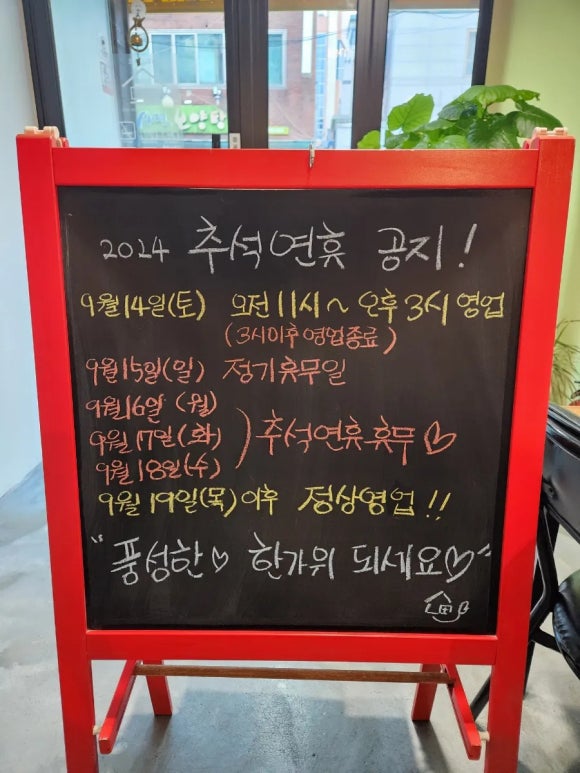 2024 추석연휴 공지!
9월14일(토) 오전11시~오후3시영업
(3시이후영업종료)
9월15일(일) 정기휴무일
9월16일 (월)
9월17일(화) ) 추석연휴휴무♡
9월18일(수)
9월 19일(목)이후 정상영업!!
"풍성한♡ 한가위 되세요♡"